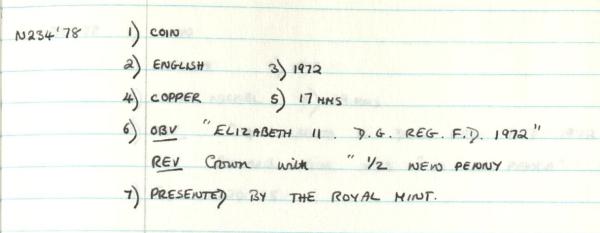 N234'78 1) COIN
2) ENGLISH 3) 1972
4) COPPER 5) 17 MMS
6) OBV "ELIZABETH II. D.G. REG. F.D. 1972"
REV Crown with " 1/2 NEW PENNY
7) PRESENTED BY THE ROYAL MINT.